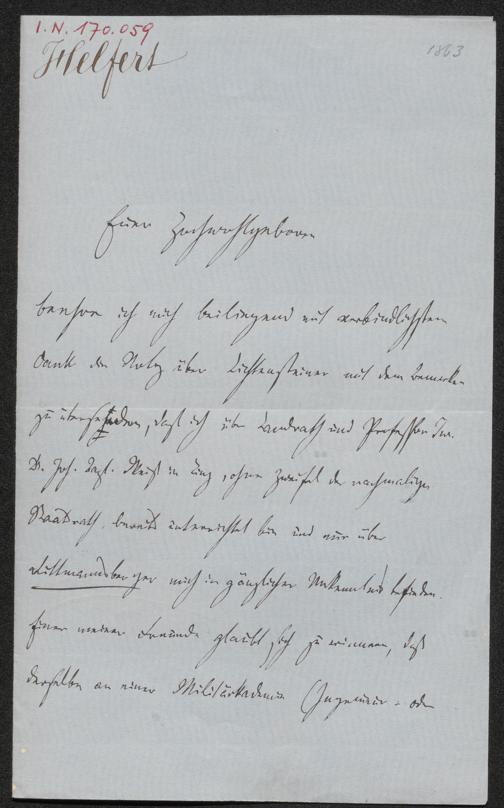 I.N. 170.059
Helfert
1863
Euer Hochwohlgeboren
beehre ich mich beiliegend mit verbindlichstem
Dank die Notiz über Lichtensteiner mit dem Bemerken
zu übersenden, daß ich über Landrath und Professor Jur.
Dr. Joh. Bapt. in , ohne Zweifel der nachmalige
Staatsrath, bereits unterrichtet bin und nur über
Littmannsberger mich in gänzlicher Unkenntniß befinde.
Einer meiner Freunde glaubt sich zu erinnern, daß
derselbe an einer Militärakademie (Ingenieur- oder